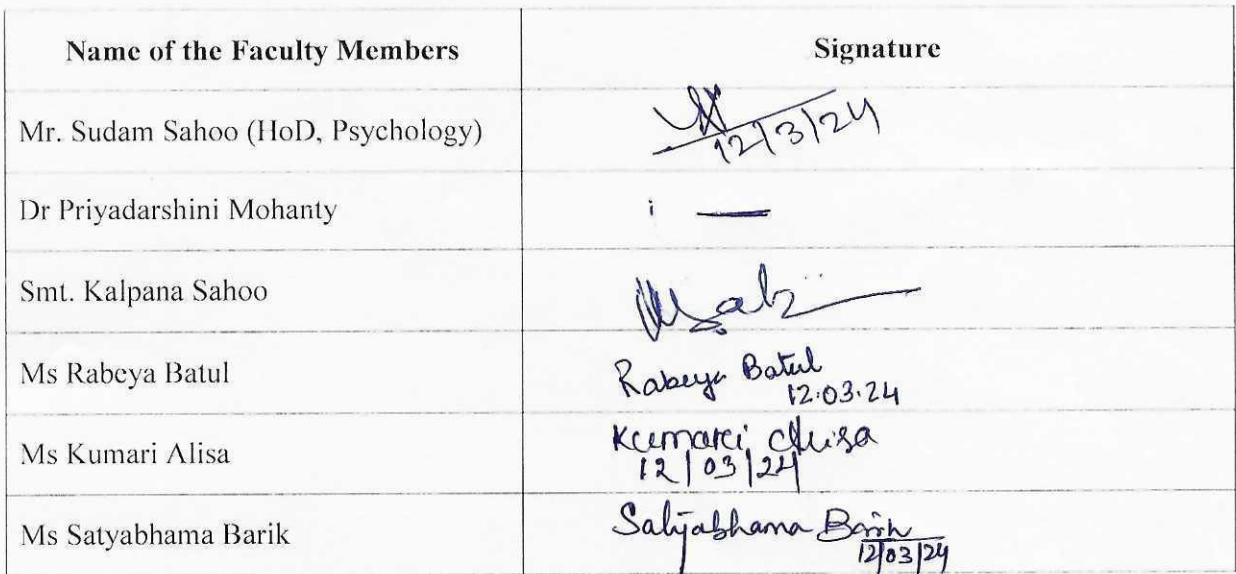 Name of the Faculty Members Signature
Mr. Sudam Sahoo (HoD, Psychology)
12/3/24
Dr Priyadarshini Mohanty
Smt. Kalpana Sahoo
Ms Rabeya Batul Rabeya Batul
12.03.24
Ms Kumari Alisa Kumari Alisa
12/03/24
Ms Satyabhama Barik Satyabhama Barik
12/03/24